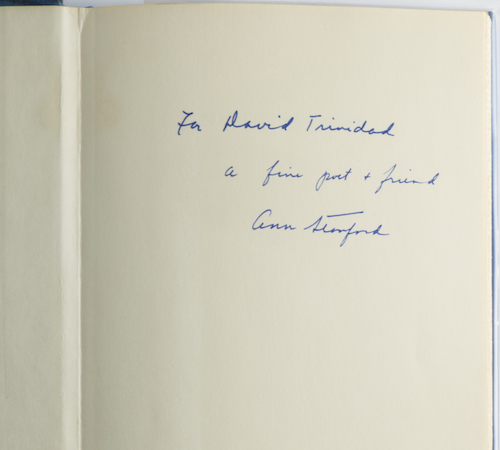 For David Trinidad
a fine poet + friend
Ann Stanford